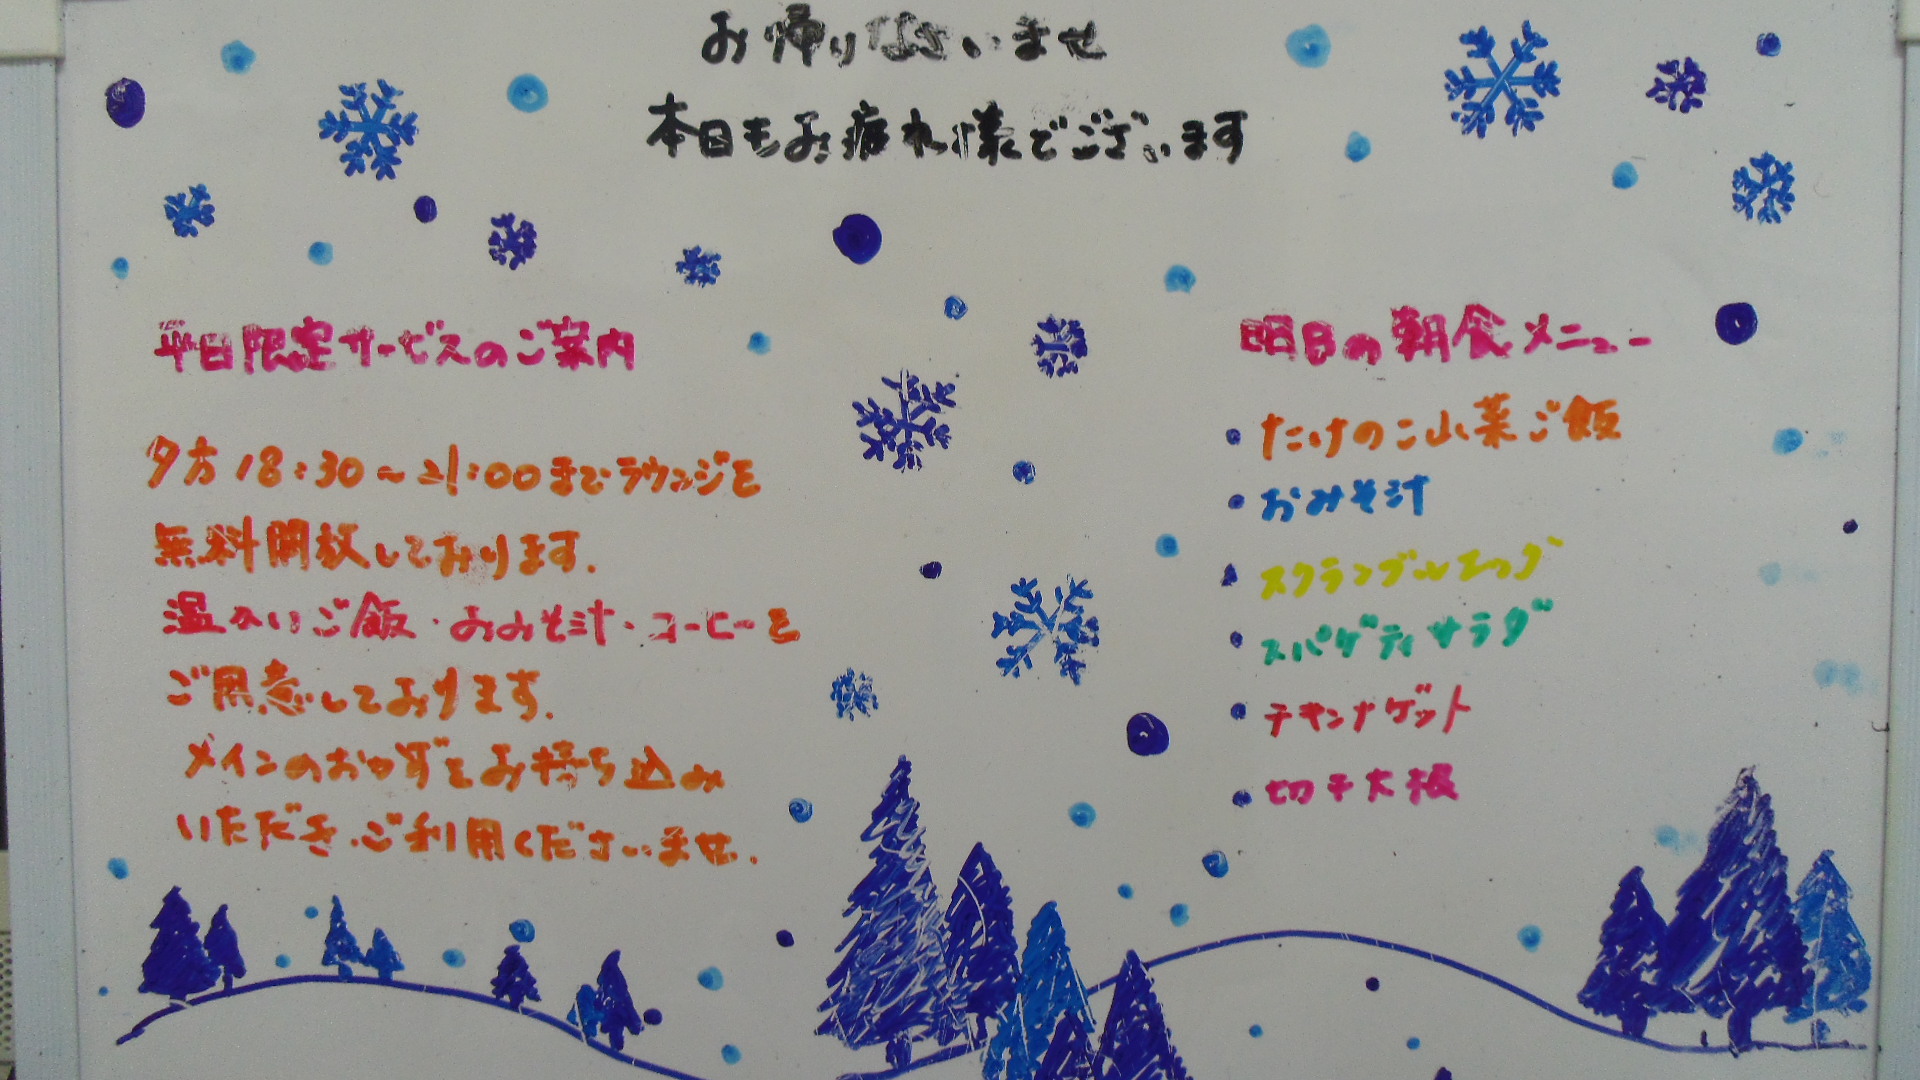 お帰りなさいませ
本日もお疲れ様でございます
平日限定サービスのご案内
夕方18:30～21:00までラウンジを
無料開放しております.
温かいご飯・おみそ汁・コーヒーを
ご用意しております.
メインのおかずをお持ち込み
いただき、ご利用くださいませ.
明日の朝食メニュー
・たけのこ山菜ご飯
・おみそ汁
・スクランブルエッグ
・スパゲティサラダ
・チキンナゲット
・切干大根